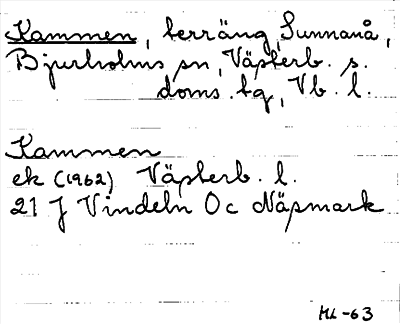 Kammen, terräng, Sunnanå,
Bjurholms sn, Västerb. s.
doms. tg, Vb. l.
Kammen
ek (1962) Västerb. l.
21 J Vindeln Oc Näsmark
ML-63